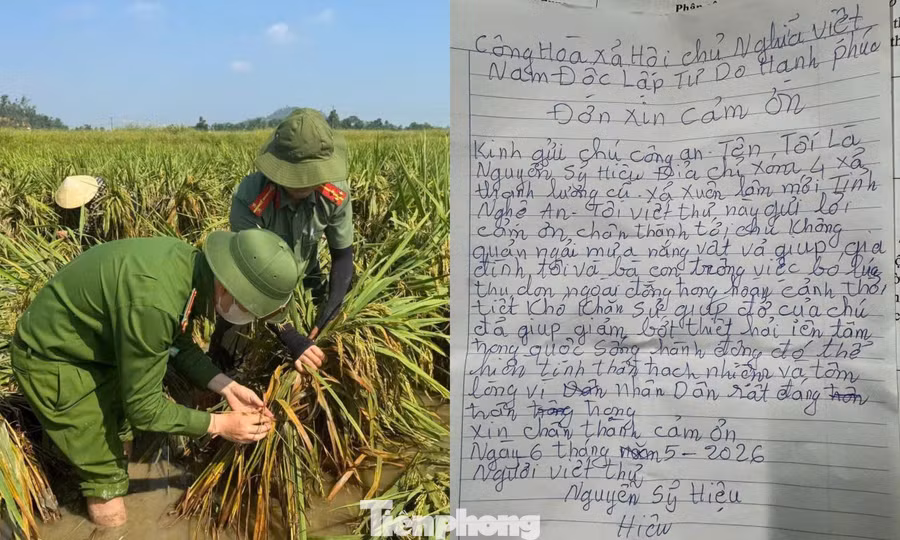 Công Hòa xả Hôi chủ Nghĩa Việt
Nam Đôc Lâp Tư Do Hanh phúc
Đớn xin cảm ơn
Kinh gửi chú công an Tên Tôi La
Nguyễn Sỹ Hiệu Địa chỉ xom 4 xả
thanh lương cũ. xả xuôn lâm mới Tỉnh
Nghệ An. Tôi viết thư này gửi lời
cảm ơn chân thành tới chú không
quản ngải mưa năng vât vả giup gia
đình tôi và bà con trong viêc bó lúa
thu don ngoai đồng hong hoan cảnh thời
tiết Kho Khăn Sư giúp đỡ của chú
đã giup giảm bớt thiêt hai iên tâm
hong quôc Sông hành đông đó thể
hiên tinh thân trach nhiêm va tâm
lòng vì Nhân Dân rất đáng
trân hong
xin chân thành cảm ơn
Ngay 6 tháng 5 - 2026
Người viết thư
Nguyễn Sỹ Hiệu
Hiêu
Tiênphong